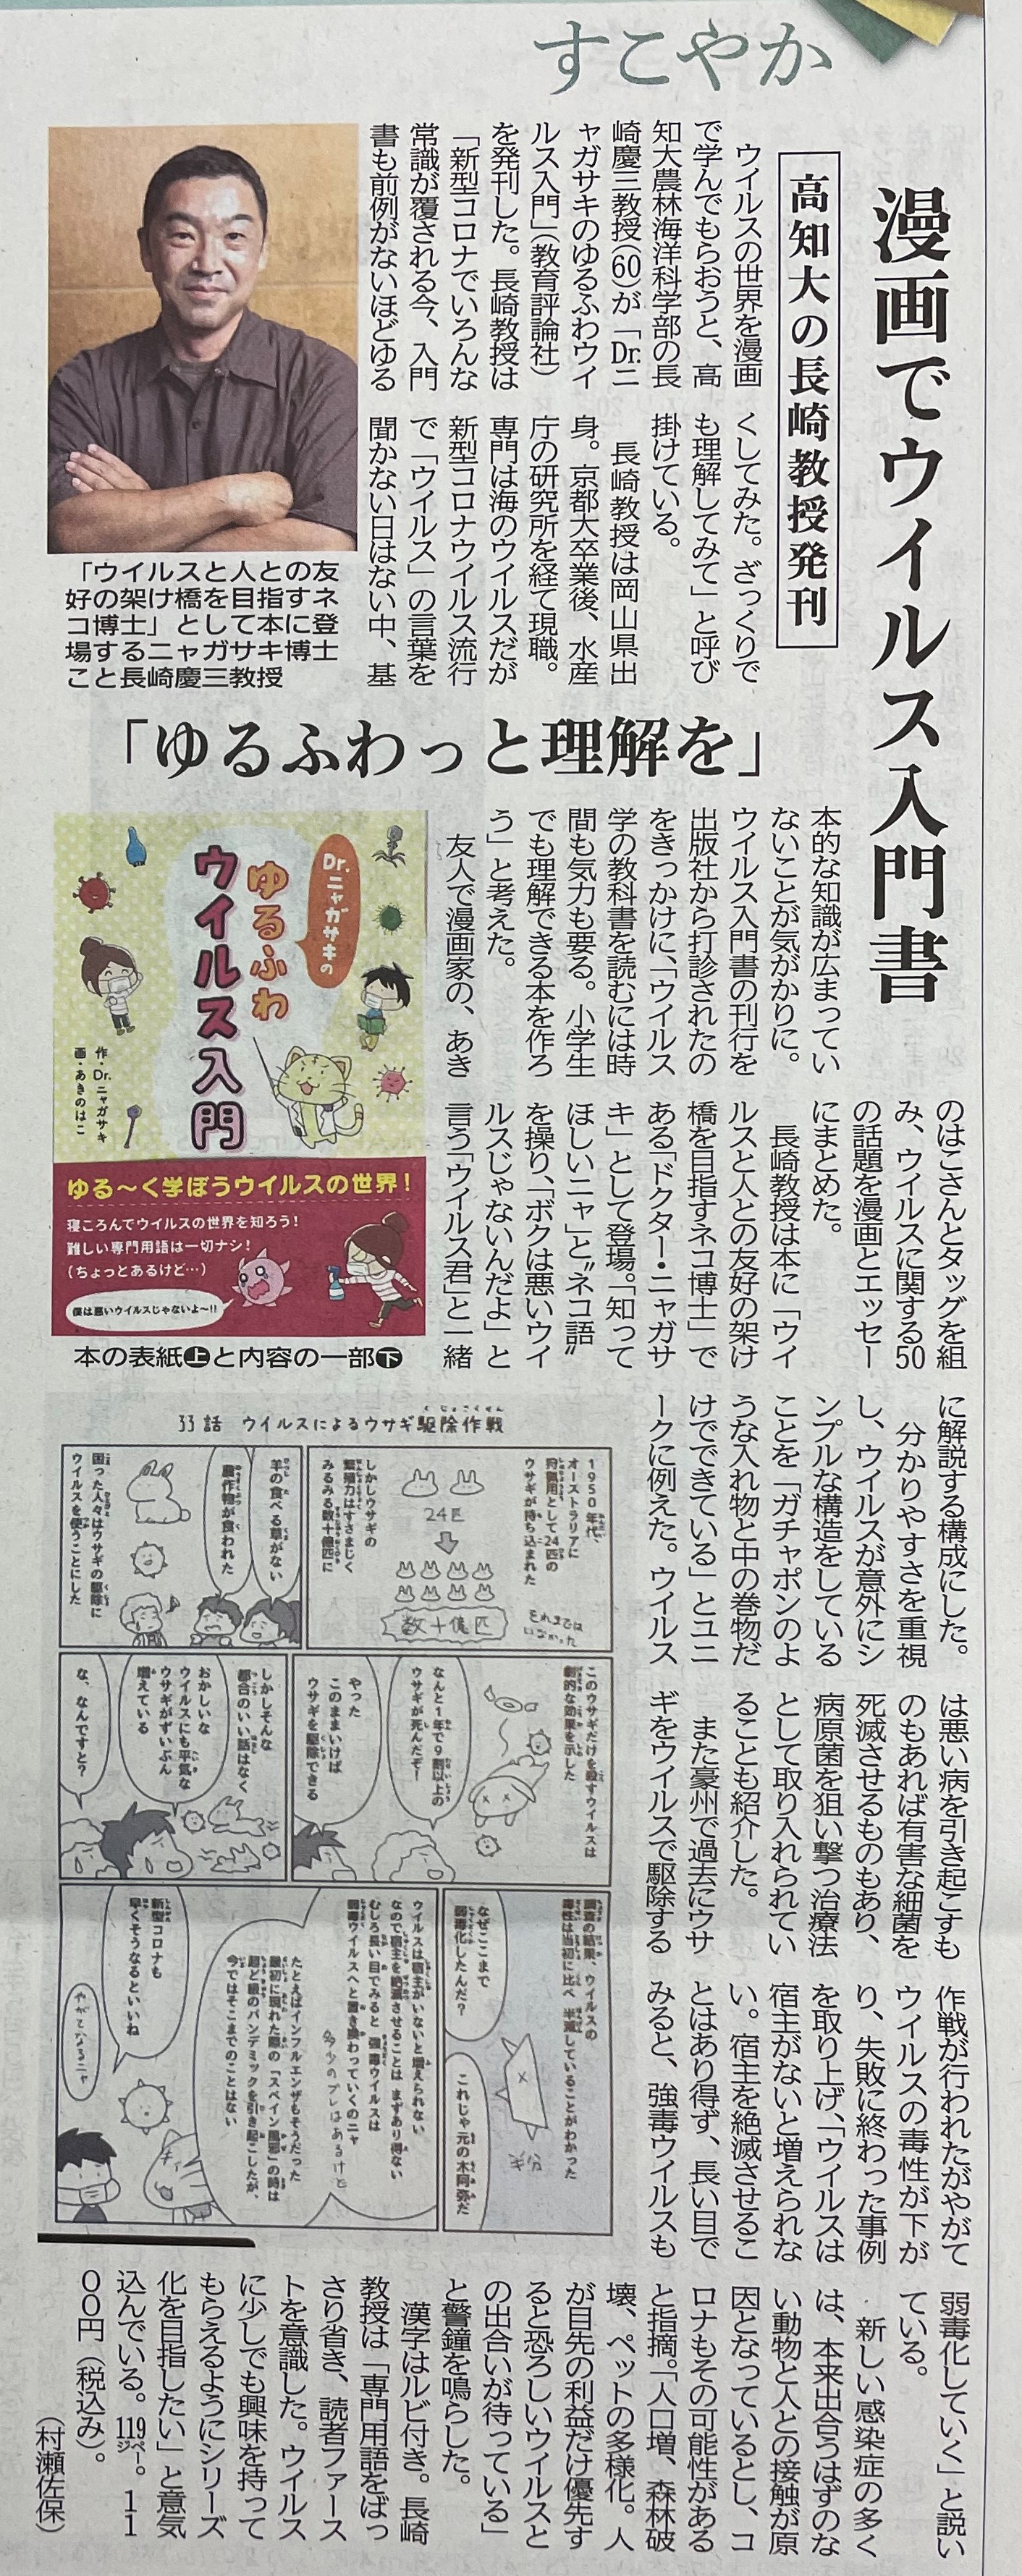 すこやか
漫画でウイルス入門書
高知大の長崎教授発刊
ウイルスの世界を漫画
で学んでもらおうと、高
知大農林海洋科学部の長
崎慶三教授(60)が「Dr.ニ
ャガサキのゆるふわウイ
ルス入門」(教育評論社)
を発刊した。長崎教授は
「新型コロナでいろんな
常識が覆される今、入門
書も前例がないほどゆる
くしてみた。ざっくりで
も理解してみて」と呼び
掛けている。
長崎教授は岡山県出
身。京都大卒業後、水産
庁の研究所を経て現職。
専門は海のウイルスだが
新型コロナウイルス流行
で「ウイルス」の言葉を
聞かない日はない中、基
「ウイルスと人との友
好の架け橋を目指すネ
コ博士」として本に登
場するニャガサキ博士
こと長崎慶三教授
「ゆるふわっと理解を」
本的な知識が広まってい
ないことが気がかりに。
ウイルス入門書の刊行を
出版社から打診されたの
をきっかけに、「ウイルス
学の教科書を読むには時
間も気力も要る。小学生
でも理解できる本を作ろ
う」と考えた。
友人で漫画家の、あき
のはこさんとタッグを組
み、ウイルスに関する50
の話題を漫画とエッセー
にまとめた。
長崎教授は本に「ウイ
ルスと人との友好の架け
橋を目指すネコ博士」で
ある「ドクター・ニャガサ
キ」として登場。「知って
ほしいニャ」と〝ネコ語〟
を操り、「ボクは悪いウイ
ルスじゃないんだよ」と
言う「ウイルス君」と一緒
に解説する構成にした。
分かりやすさを重視
し、ウイルスが意外にシ
ンプルな構造をしている
ことを「ガチャポンのよ
うな入れ物と中の巻物だ
けでできている」とユニ
ークに例えた。ウイルス
は悪い病を引き起こすも
のもあれば有害な細菌を
死滅させるものもあり、
病原菌を狙い撃つ治療法
として取り入れられてい
ることも紹介した。
また豪州で過去にウサ
ギをウイルスで駆除する
作戦が行われたがやがて
ウイルスの毒性が下が
り、失敗に終わった事例
を取り上げ、「ウイルスは
宿主がないと増えられな
い。宿主を絶滅させるこ
とはあり得ず、長い目で
みると、強毒ウイルスも
弱毒化していく」と説い
ている。
新しい感染症の多く
は、本来出合うはずのな
い動物と人との接触が原
因となっているとし、コ
ロナもその可能性がある
と指摘。「人口増、森林破
壊、ペットの多様化。人
が目先の利益だけ優先す
ると恐ろしいウイルスと
の出合いが待っている」
と警鐘を鳴らした。
漢字はルビ付き。長崎
教授は「専門用語をばっ
さり省き、読者ファース
トを意識した。ウイルス
に少しでも興味を持って
もらえるようにシリーズ
化を目指したい」と意気
込んでいる。119ページ。11
00円(税込み)。
(村瀬佐保)
Dr.ニャガサキの
ゆるふわ
ウイルス入門
作・Dr.ニャガサキ
画・あきのはこ
ゆる〜く学ぼうウイルスの世界!
寝ころんでウイルスの世界を知ろう!
難しい専門用語は一切ナシ!
(ちょっとあるけど…)
僕は悪いウイルスじゃないよ〜!!
本の表紙上と内容の一部下
33話 ウイルスによるウサギ駆除作戦
1950年代、
オーストラリアに
狩猟用として24匹の
ウサギが持ち込まれた
24匹
数十億匹
それまでは
いなかった
しかしウサギの
繁殖力はすさまじく
みるみる数十億匹に
羊の食べる草がない
農作物が食われた
困った人々はウサギの駆除に
ウイルスを使うことにした
このウサギだけを殺すウイルスは
劇的な効果を示した
なんと1年で9割以上の
ウサギが死んだぞ!
やった
このままいけば
ウサギを駆除できる
しかしそんな
都合のいい話はなく
おかしいな
ウイルスにも平気な
ウサギがずいぶん
増えている
な、なんですと?
調査の結果、ウイルスの
毒性は当初に比べ 半減していることがわかった
半分
なぜここまで
弱毒化したんだ?
これじゃ元の木阿弥だ
ウイルスは宿主がいないと増えられない
なので宿主を絶滅させることは まずあり得ない
むしろ長い目でみると 強毒ウイルスは
弱毒ウイルスへと置き換わっていくのニャ
多少のブレはあるけど
たとえばインフルエンザもそうだった
最初に現れた際の「スペイン風邪」の時は
超ど級のパンデミックを引き起こしたが、
今ではそこまでのことはない
新型コロナも
早くそうなるといいね
やがてなるニャ